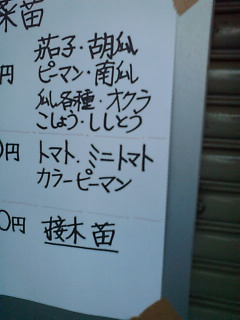 菜苗
茄子・胡瓜
円 ピーマン・南瓜
瓜各種・オクラ
こしょう・ししとう
0円 トマト.ミニトマト
カラーピーマン
0円 接木苗